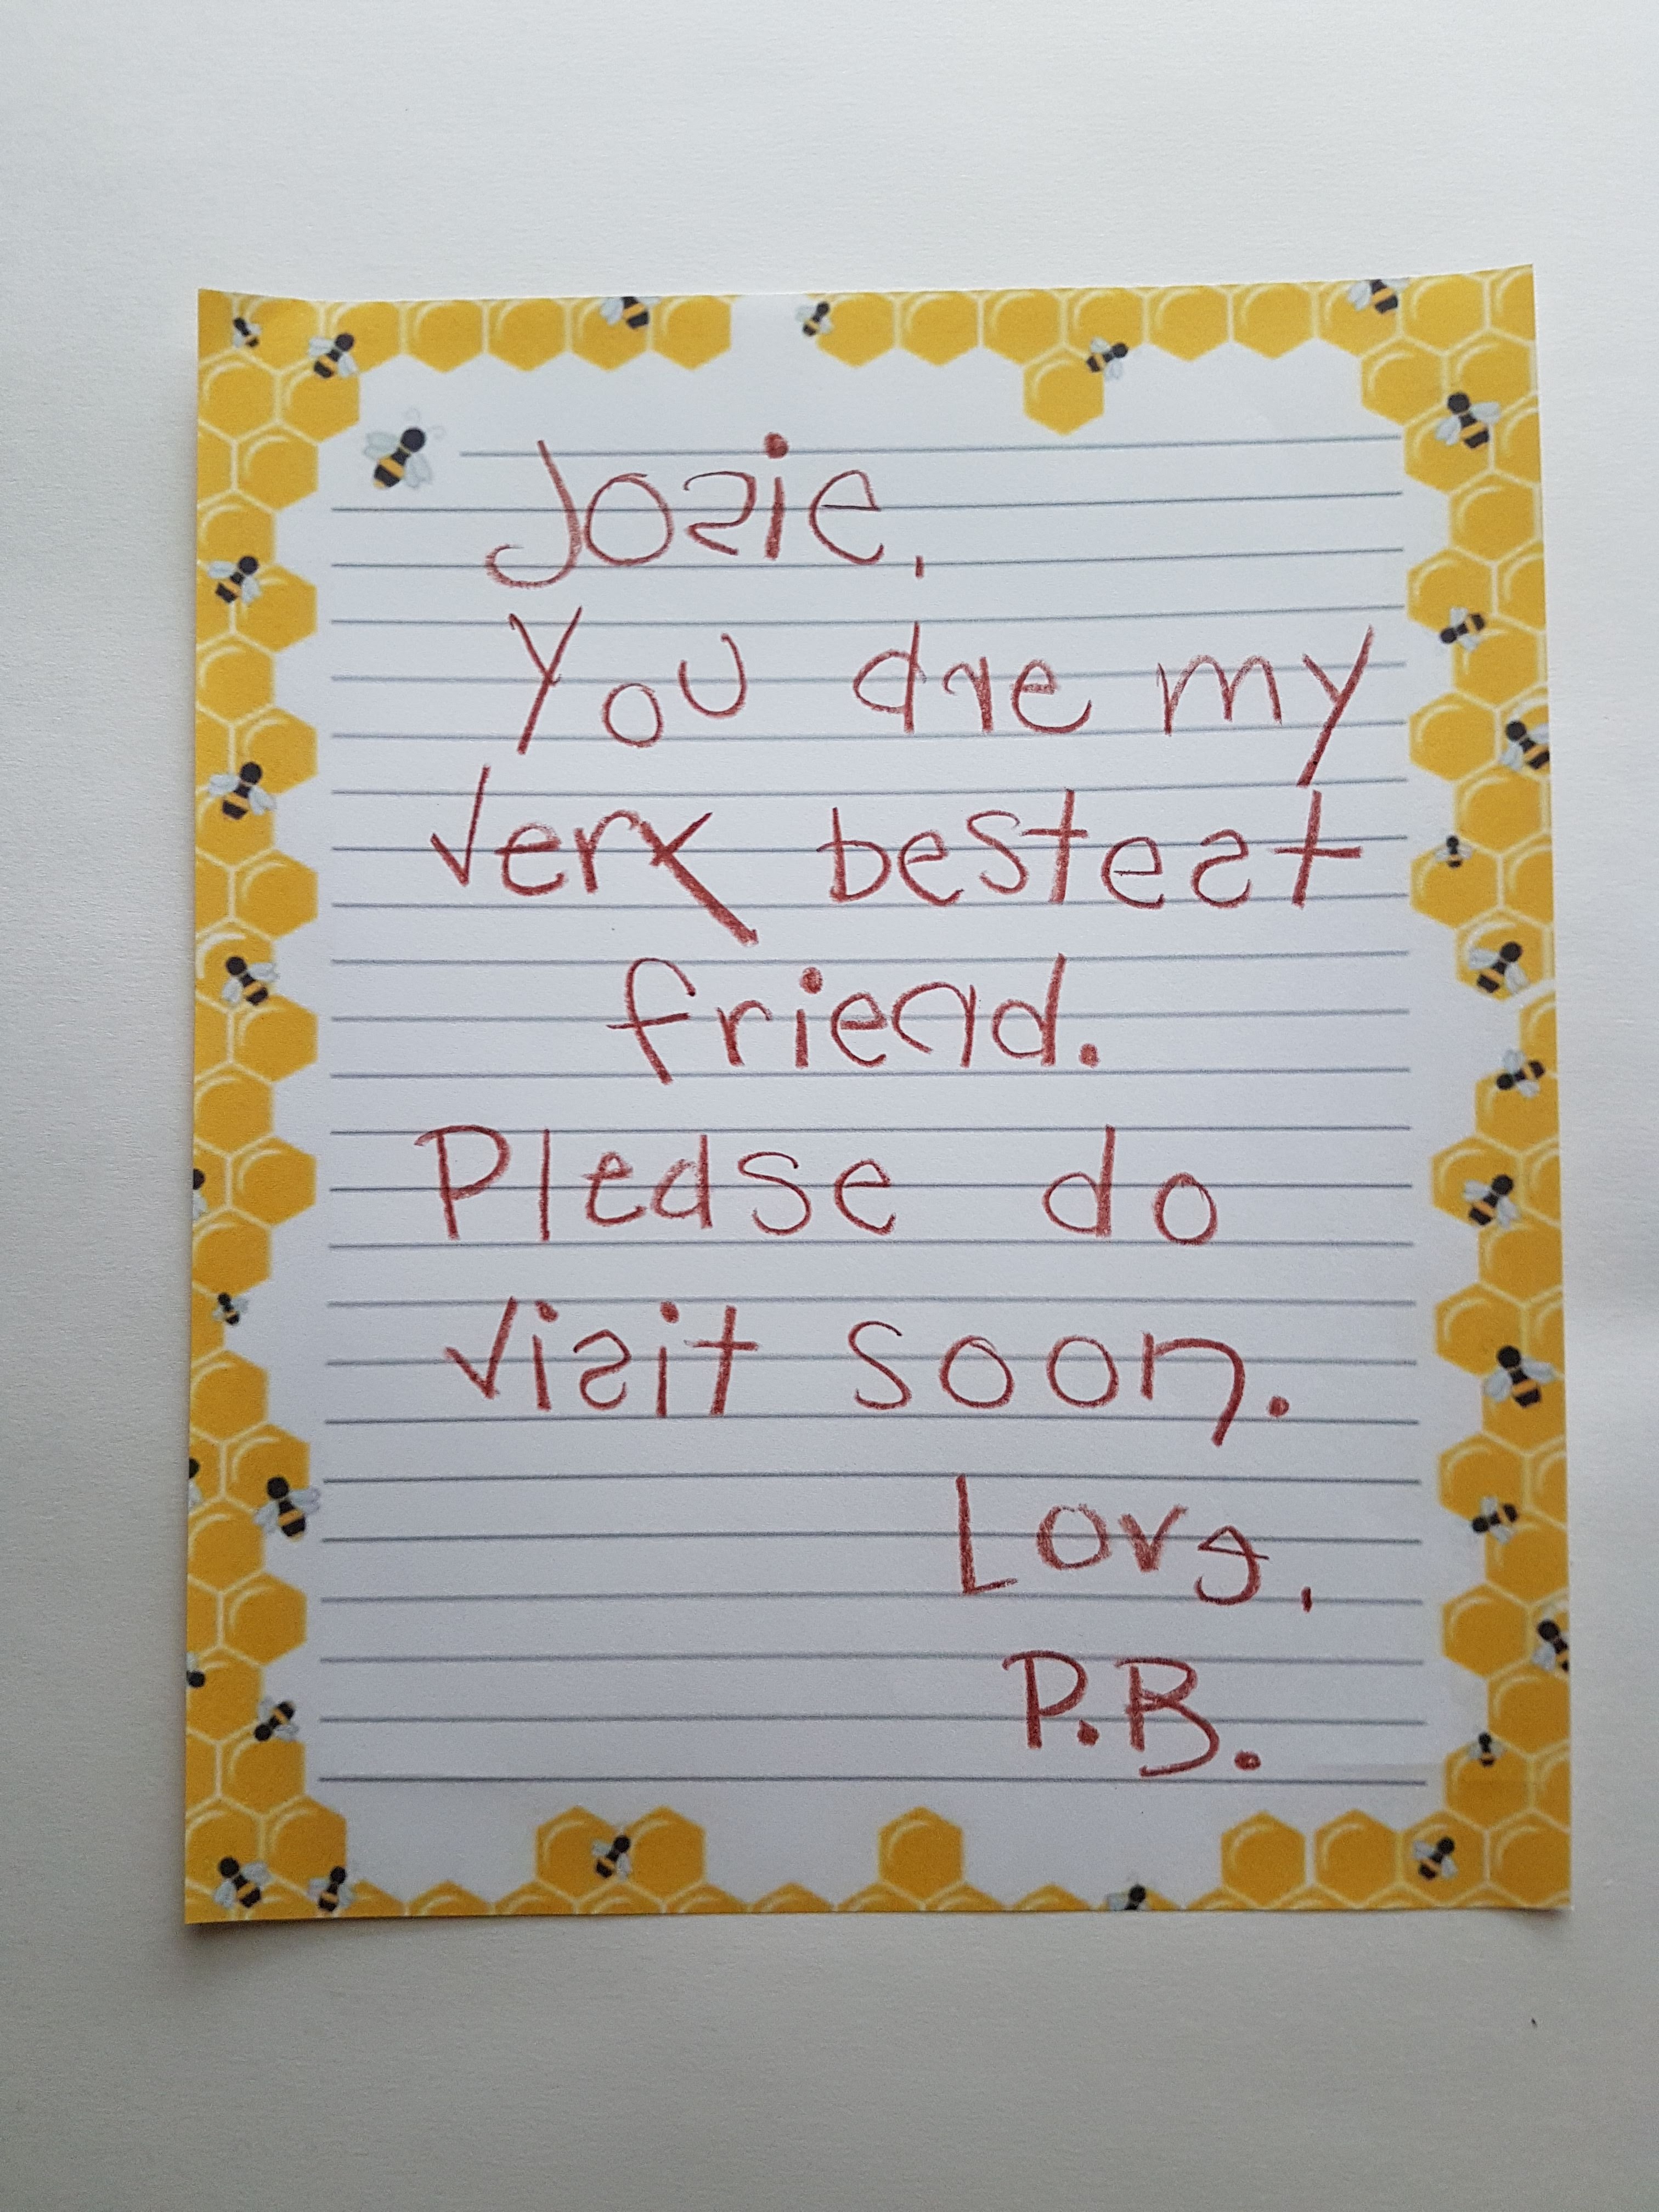 Josie,
You are my
very bestest
friend.
Please do
visit soon.
Love,
P.B.